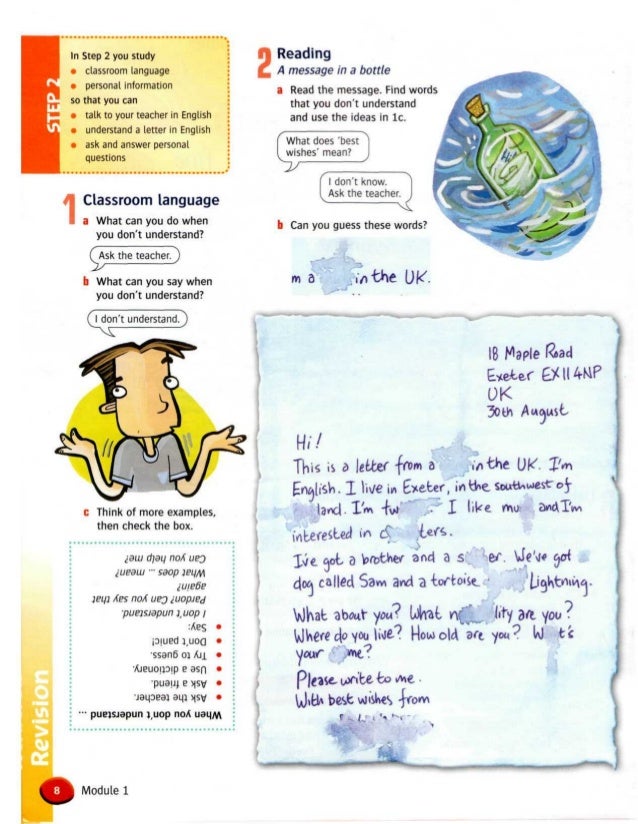 STEP 2
In Step 2 you study
• classroom language
• personal information
so that you can
• talk to your teacher in English
• understand a letter in English
• ask and answer personal
questions
1 Classroom language
a What can you do when
you don't understand?
Ask the teacher.
b What can you say when
you don't understand?
I don't understand.
c Think of more examples,
then check the box.
When you don't understand ...
• Ask the teacher.
• Ask a friend.
• Use a dictionary.
• Try to guess.
• Don't panic!
• Say:
I don't understand.
Pardon? Can you say that
again?
What does ... mean?
Can you help me?
2 Reading
A message in a bottle
a Read the message. Find words
that you don't understand
and use the ideas in 1c.
What does 'best
wishes' mean?
I don't know.
Ask the teacher.
b Can you guess these words?
m a in the UK.
18 Maple Road
Exeter EX11 4NP
UK
30th August
Hi!
This is a letter from a in the UK. I'm
English. I live in Exeter, in the southwest of
land. I'm tw I like mu and I'm
interested in c ters.
I've got a brother and a s er. We've got a
dog called Sam and a tortoise c Lightning.
What about you? What n lity are you?
Where do you live? How old are you? W t's
your me?
Please write to me.
With best wishes from
Revision
8 Module 1